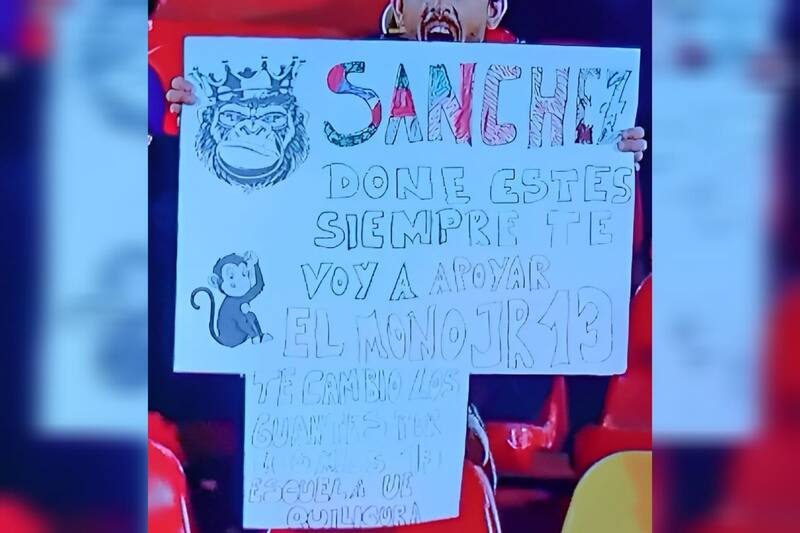 SANCHEZ
DONE ESTES
SIEMPRE TE
VOY A APOYAR
EL MONO JR 13
TE CAMBIO LOS
GUANTES POR
LOS MIOS 13
ESCUELA UE
QUILICURA